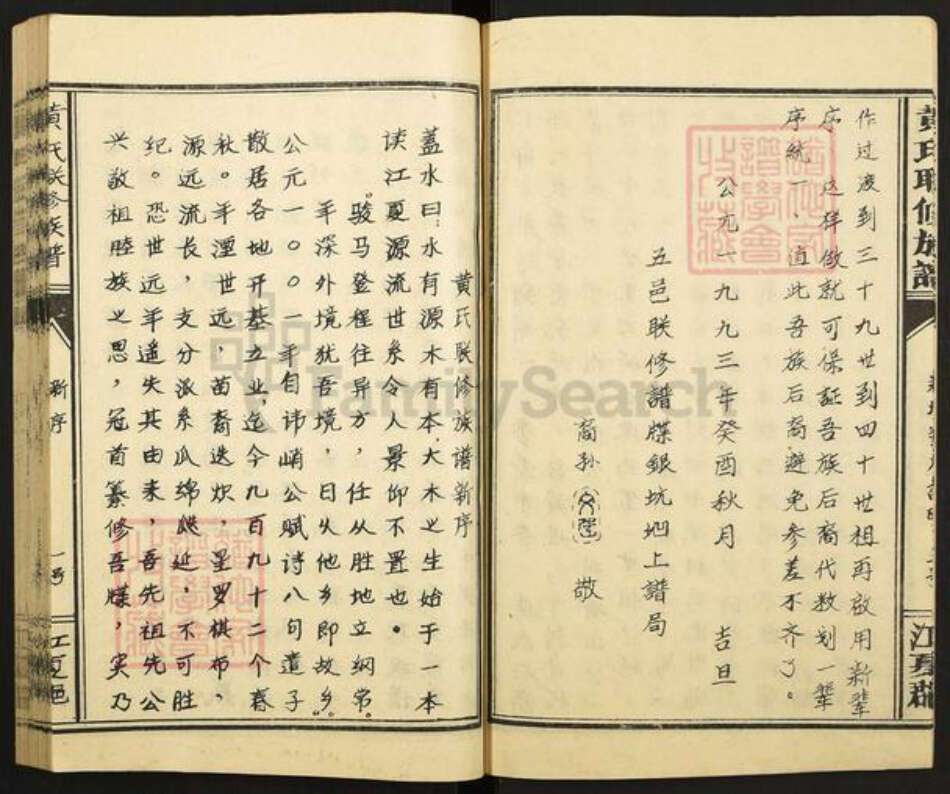 作过渡到三十九世到四十世祖再啟用新輩
序，这样做就可保証吾族后裔代数划一輩
序統一、值此吾族后裔避免参差不齐了。
公元一九九三年癸酉秋月 吉旦
五邑联修譜牒銀坑地上譜局
裔孙 敬
黄氏联修族谱新序
盖水曰：水有源木有本，大木之生始于一本
读江夏源流世系令人景仰不置也。
骏马登程往异方，任从胜地立纲常。
年深外境犹吾境，日久他乡即故乡。
公元一〇〇一年自讳峭公赋诗八句遣子
散居各地开基立业，迄今九百九十二个春
秋。年湮世远，苗裔迭炽，星罗棋布，
源远流长，支分派系瓜绵瓞延，不可胜
纪。恐世远年遥失其由来，吾先祖先公
兴敬祖睦族之思，冠首纂修吾牒，实乃
黄氏联修族普
新序
江夏邑
黄氏联修族譜
江夏郡
FamilySearch